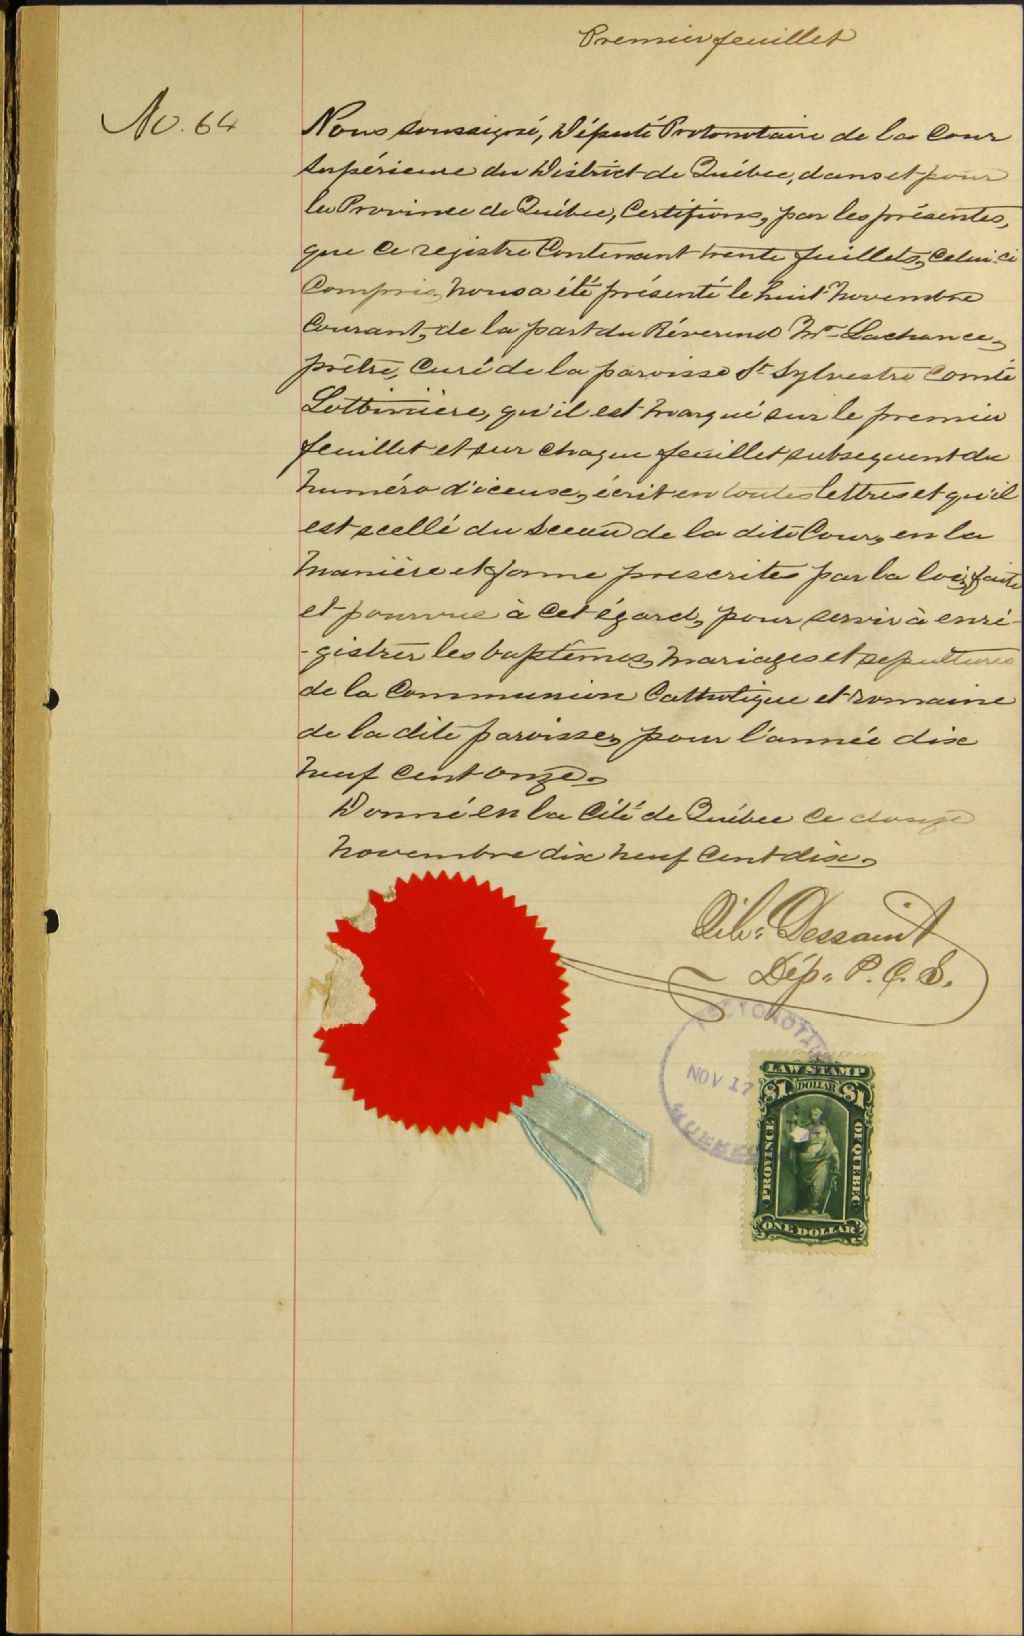 Premier feuillet
No. 64
Nous soussigné, Député Protonotaire de la Cour
Supérieure du District de Québec, dans et pour
la Province de Québec, Certifions, par les présentes,
que ce registre Contenant trente feuillets, celui-ci
Compris, nous a été présenté le huit Novembre
Courant, de la part du Révérend Mr. Lachance,
prêtre, Curé de la paroisse St. Sylvestre Comté
Lotbinière, qu'il est marqué sur le premier
feuillet et sur chaque feuillet subsequent du
numéro d'iceux, écrit en toutes lettres et qu'il
est scellé du Sceau de la dite Cour, en la
manière et forme prescrites par la loi, faite
et pourvue à cet égard, pour servir à enré-
-gistrer les baptêmes, mariages et sepultures
de la Communion Catholique et romaine
de la dite paroisse, pour l'année dix
neuf Cent onze.
Donné en la Cité de Québec ce douze
Novembre dix neuf Cent dix.
Dessaint
Dép. P. C. S.
NOV 17
QUEBEC
LAW STAMP
$1 DOLLAR $1
PROVINCE OF QUEBEC
ONE DOLLAR